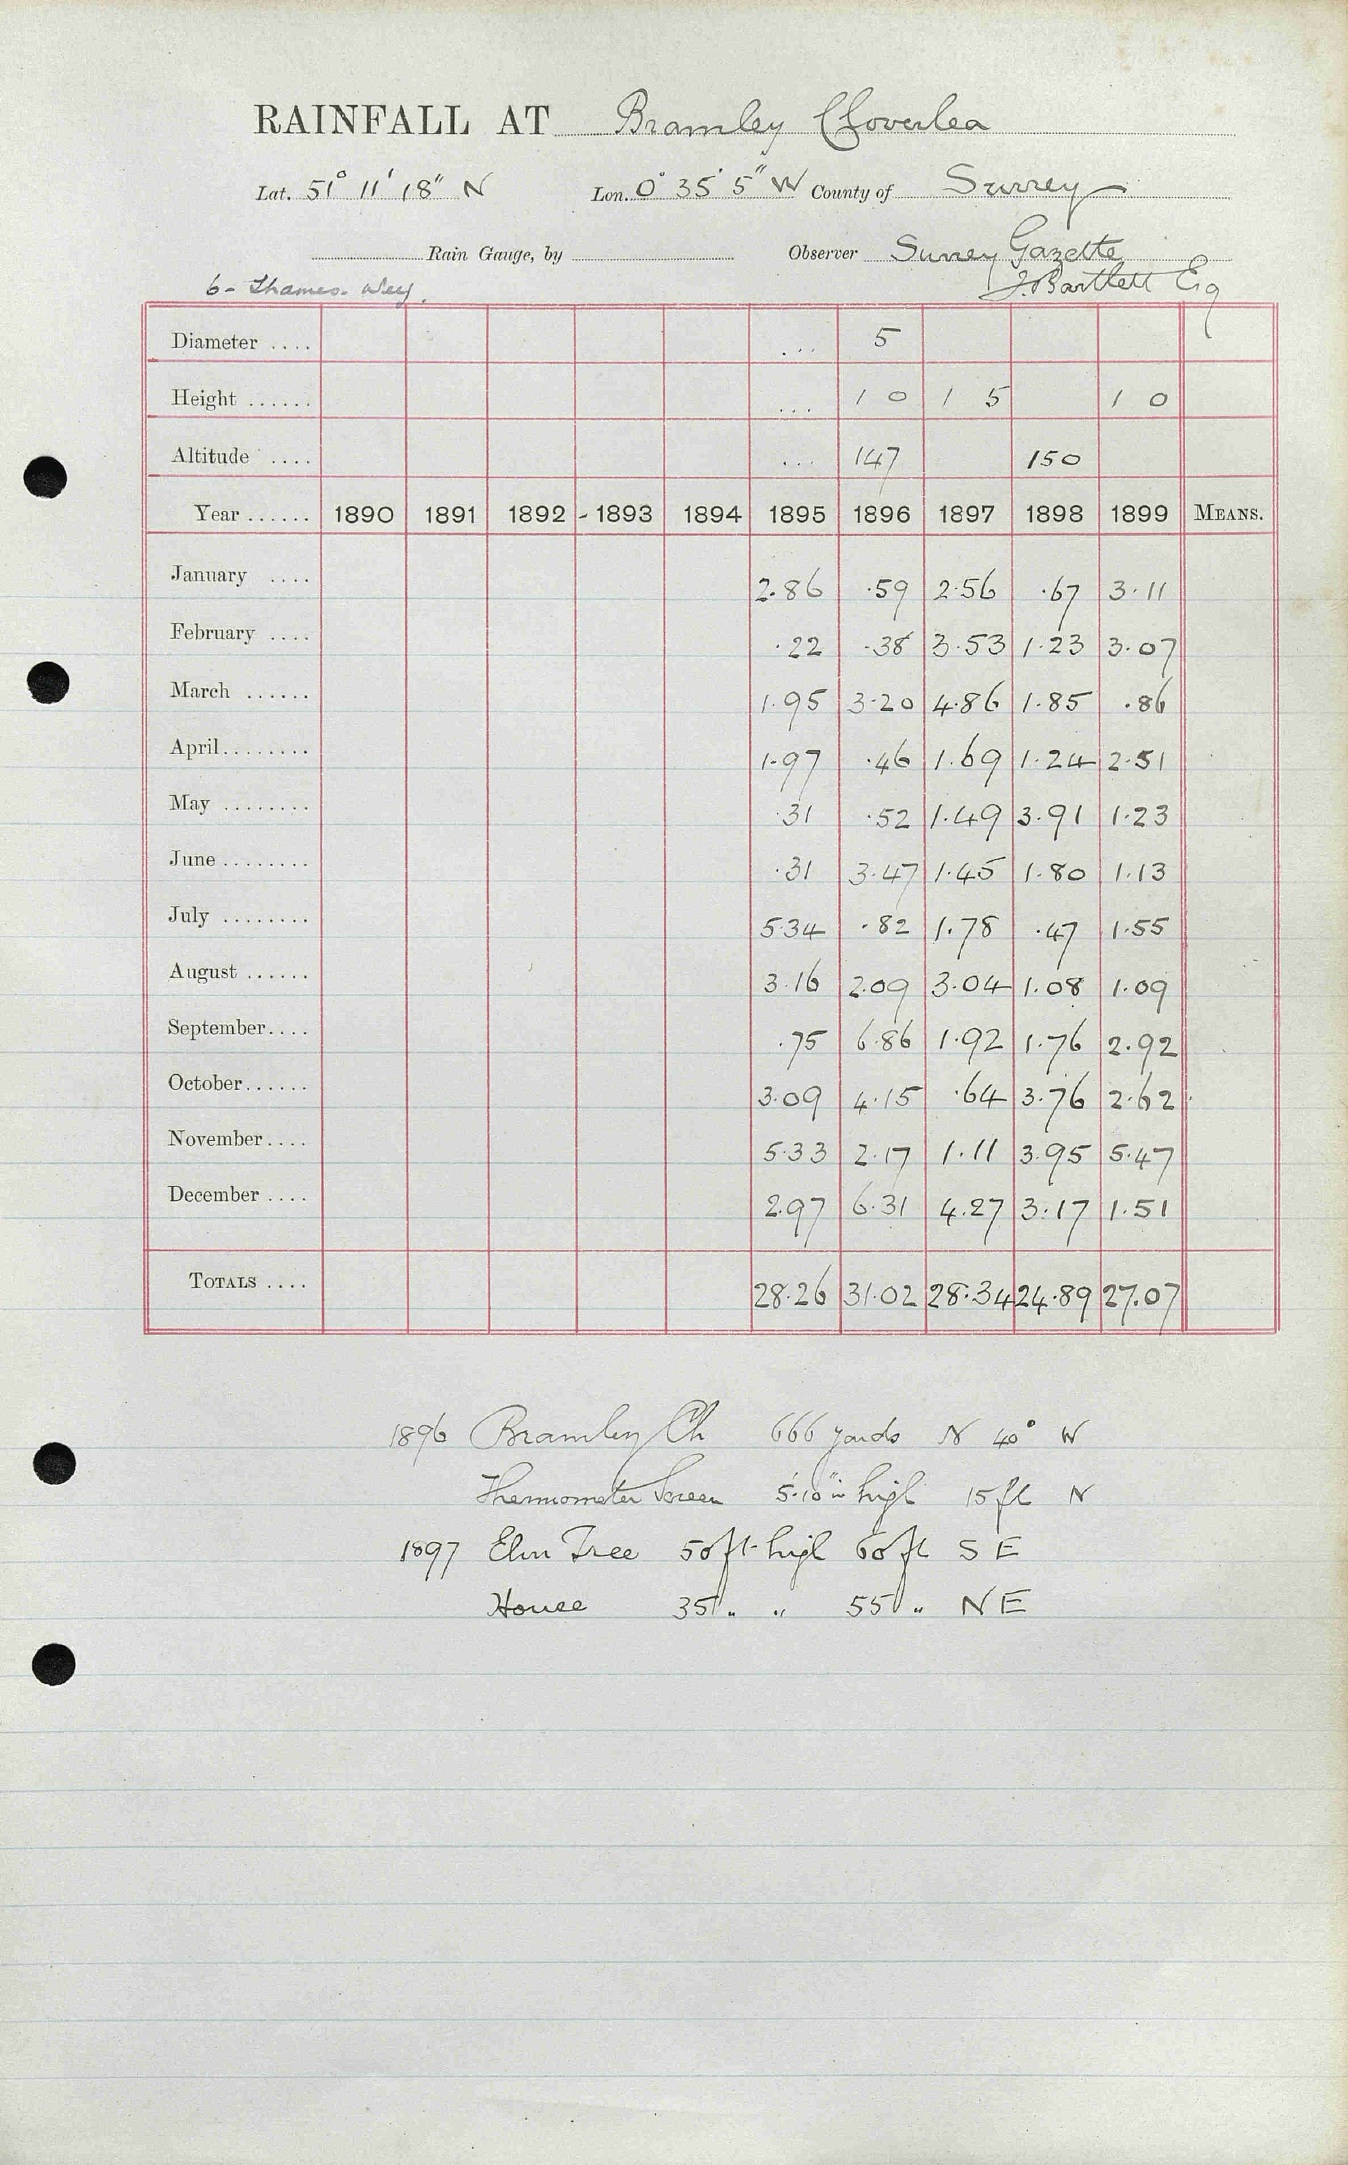 RAINFALL AT Bramley Cloverlea
Lat. 51° 11' 18" N Lon. 0° 35' 5" W County of Surrey
Rain Gauge, by Observer Surrey Gazette
6 - Thames. Wey. J. Bartlett Esq
Diameter .... ... 5
Height ...... ... 1 0 1 5 1 0
Altitude .... ... 147 150
Year ...... 1890 1891 1892 - 1893 1894 1895 1896 1897 1898 1899 MEANS.
January .... 2.86 .59 2.56 .67 3.11
February .... .22 .38 3.53 1.23 3.07
March ...... 1.95 3.20 4.86 1.85 .86
April ........ 1.97 .46 1.69 1.24 2.51
May ........ .31 .52 1.49 3.91 1.23
June ........ .31 3.47 1.45 1.80 1.13
July ........ 5.34 .82 1.78 .47 1.55
August ...... 3.16 2.09 3.04 1.08 1.09
September .... .75 6.86 1.92 1.76 2.92
October ...... 3.09 4.15 .64 3.76 2.62
November .... 5.33 2.17 1.11 3.95 5.47
December .... 2.97 6.31 4.27 3.17 1.51
TOTALS .... 28.26 31.02 28.34 24.89 27.07
1896 Bramley Ch 666 yards N 40° W
Thermometer Screen 5' 10" in high 15 ft N
1897 Elm Tree 50 ft high 60 ft S E
House 35 " " 55 " N E